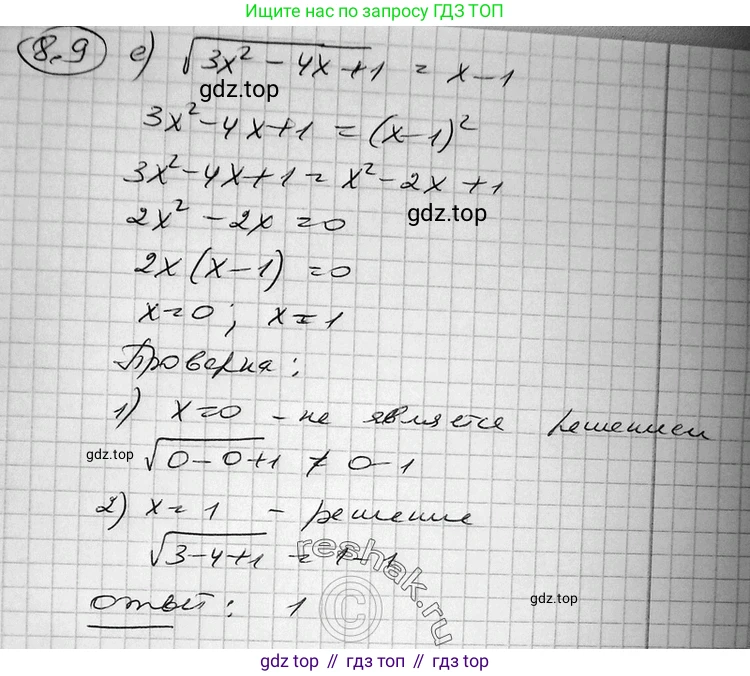 Ищите нас по запросу ГДЗ ТОП
8.9 е) √(3x² - 4x + 1) = x - 1
gdz.top
3x² - 4x + 1 = (x - 1)²
3x² - 4x + 1 = x² - 2x + 1
gdz.top
2x² - 2x = 0
2x(x - 1) = 0
x = 0; x = 1
Проверка:
1) x = 0 - не является решением
gdz.top √(0 - 0 + 1) ≠ 0 - 1
2) x = 1 - решение
√(3 - 4 + 1) = 1 - 1
reshak.ru
©
ответ: 1
gdz.top
gdz top // гдз топ // gdz top